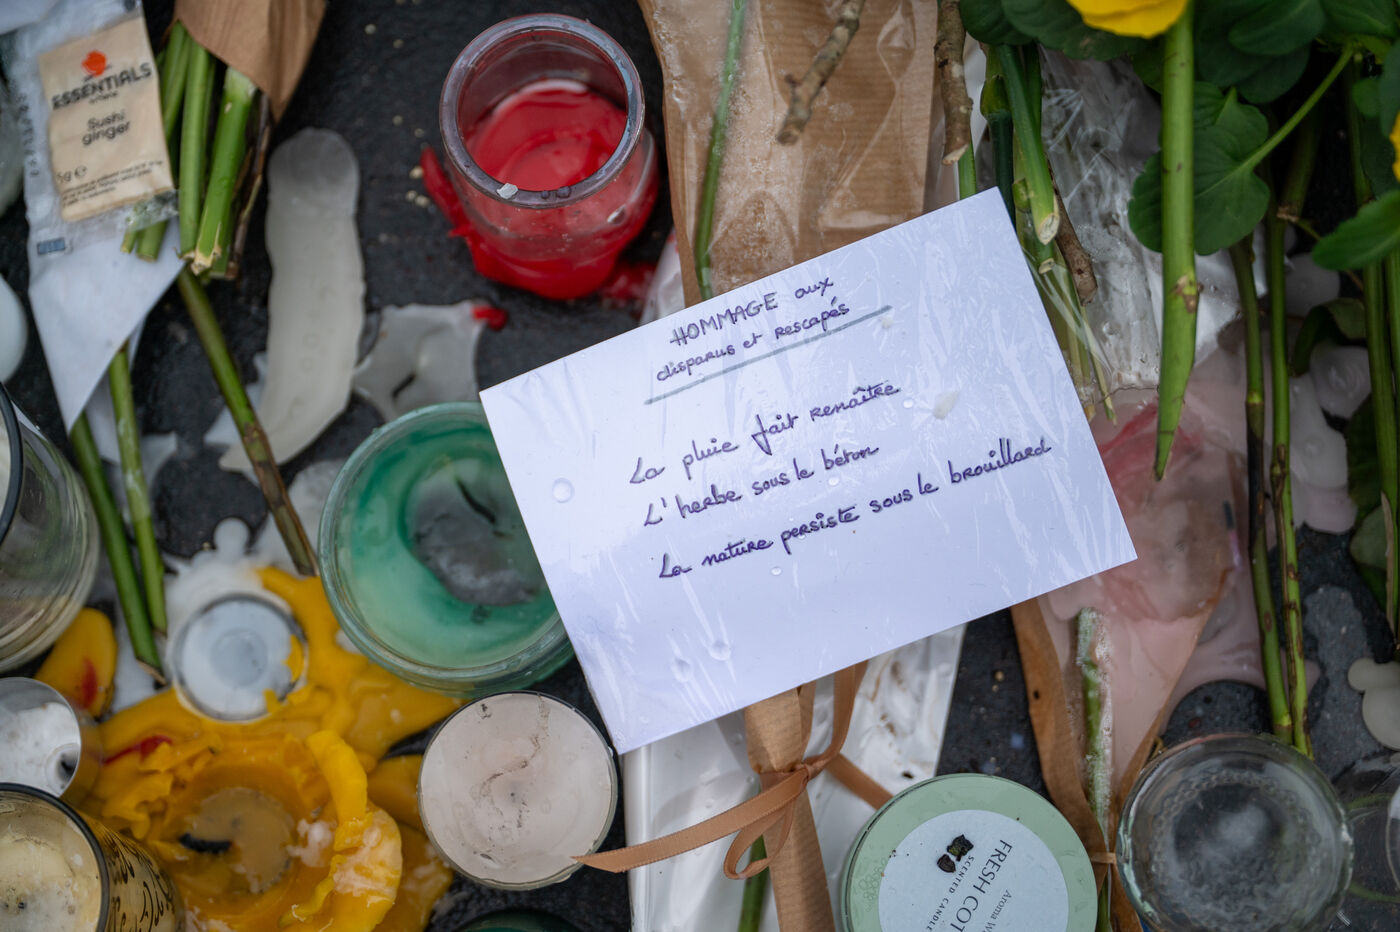 ESSENTIALS
Sushi
ginger
HOMMAGE aux
disparus et rescapés
La pluie fait renaître
L'herbe sous le béton
La nature persiste sous le brouillard
FRESH COT
SCENTED CANDLE
Aroma